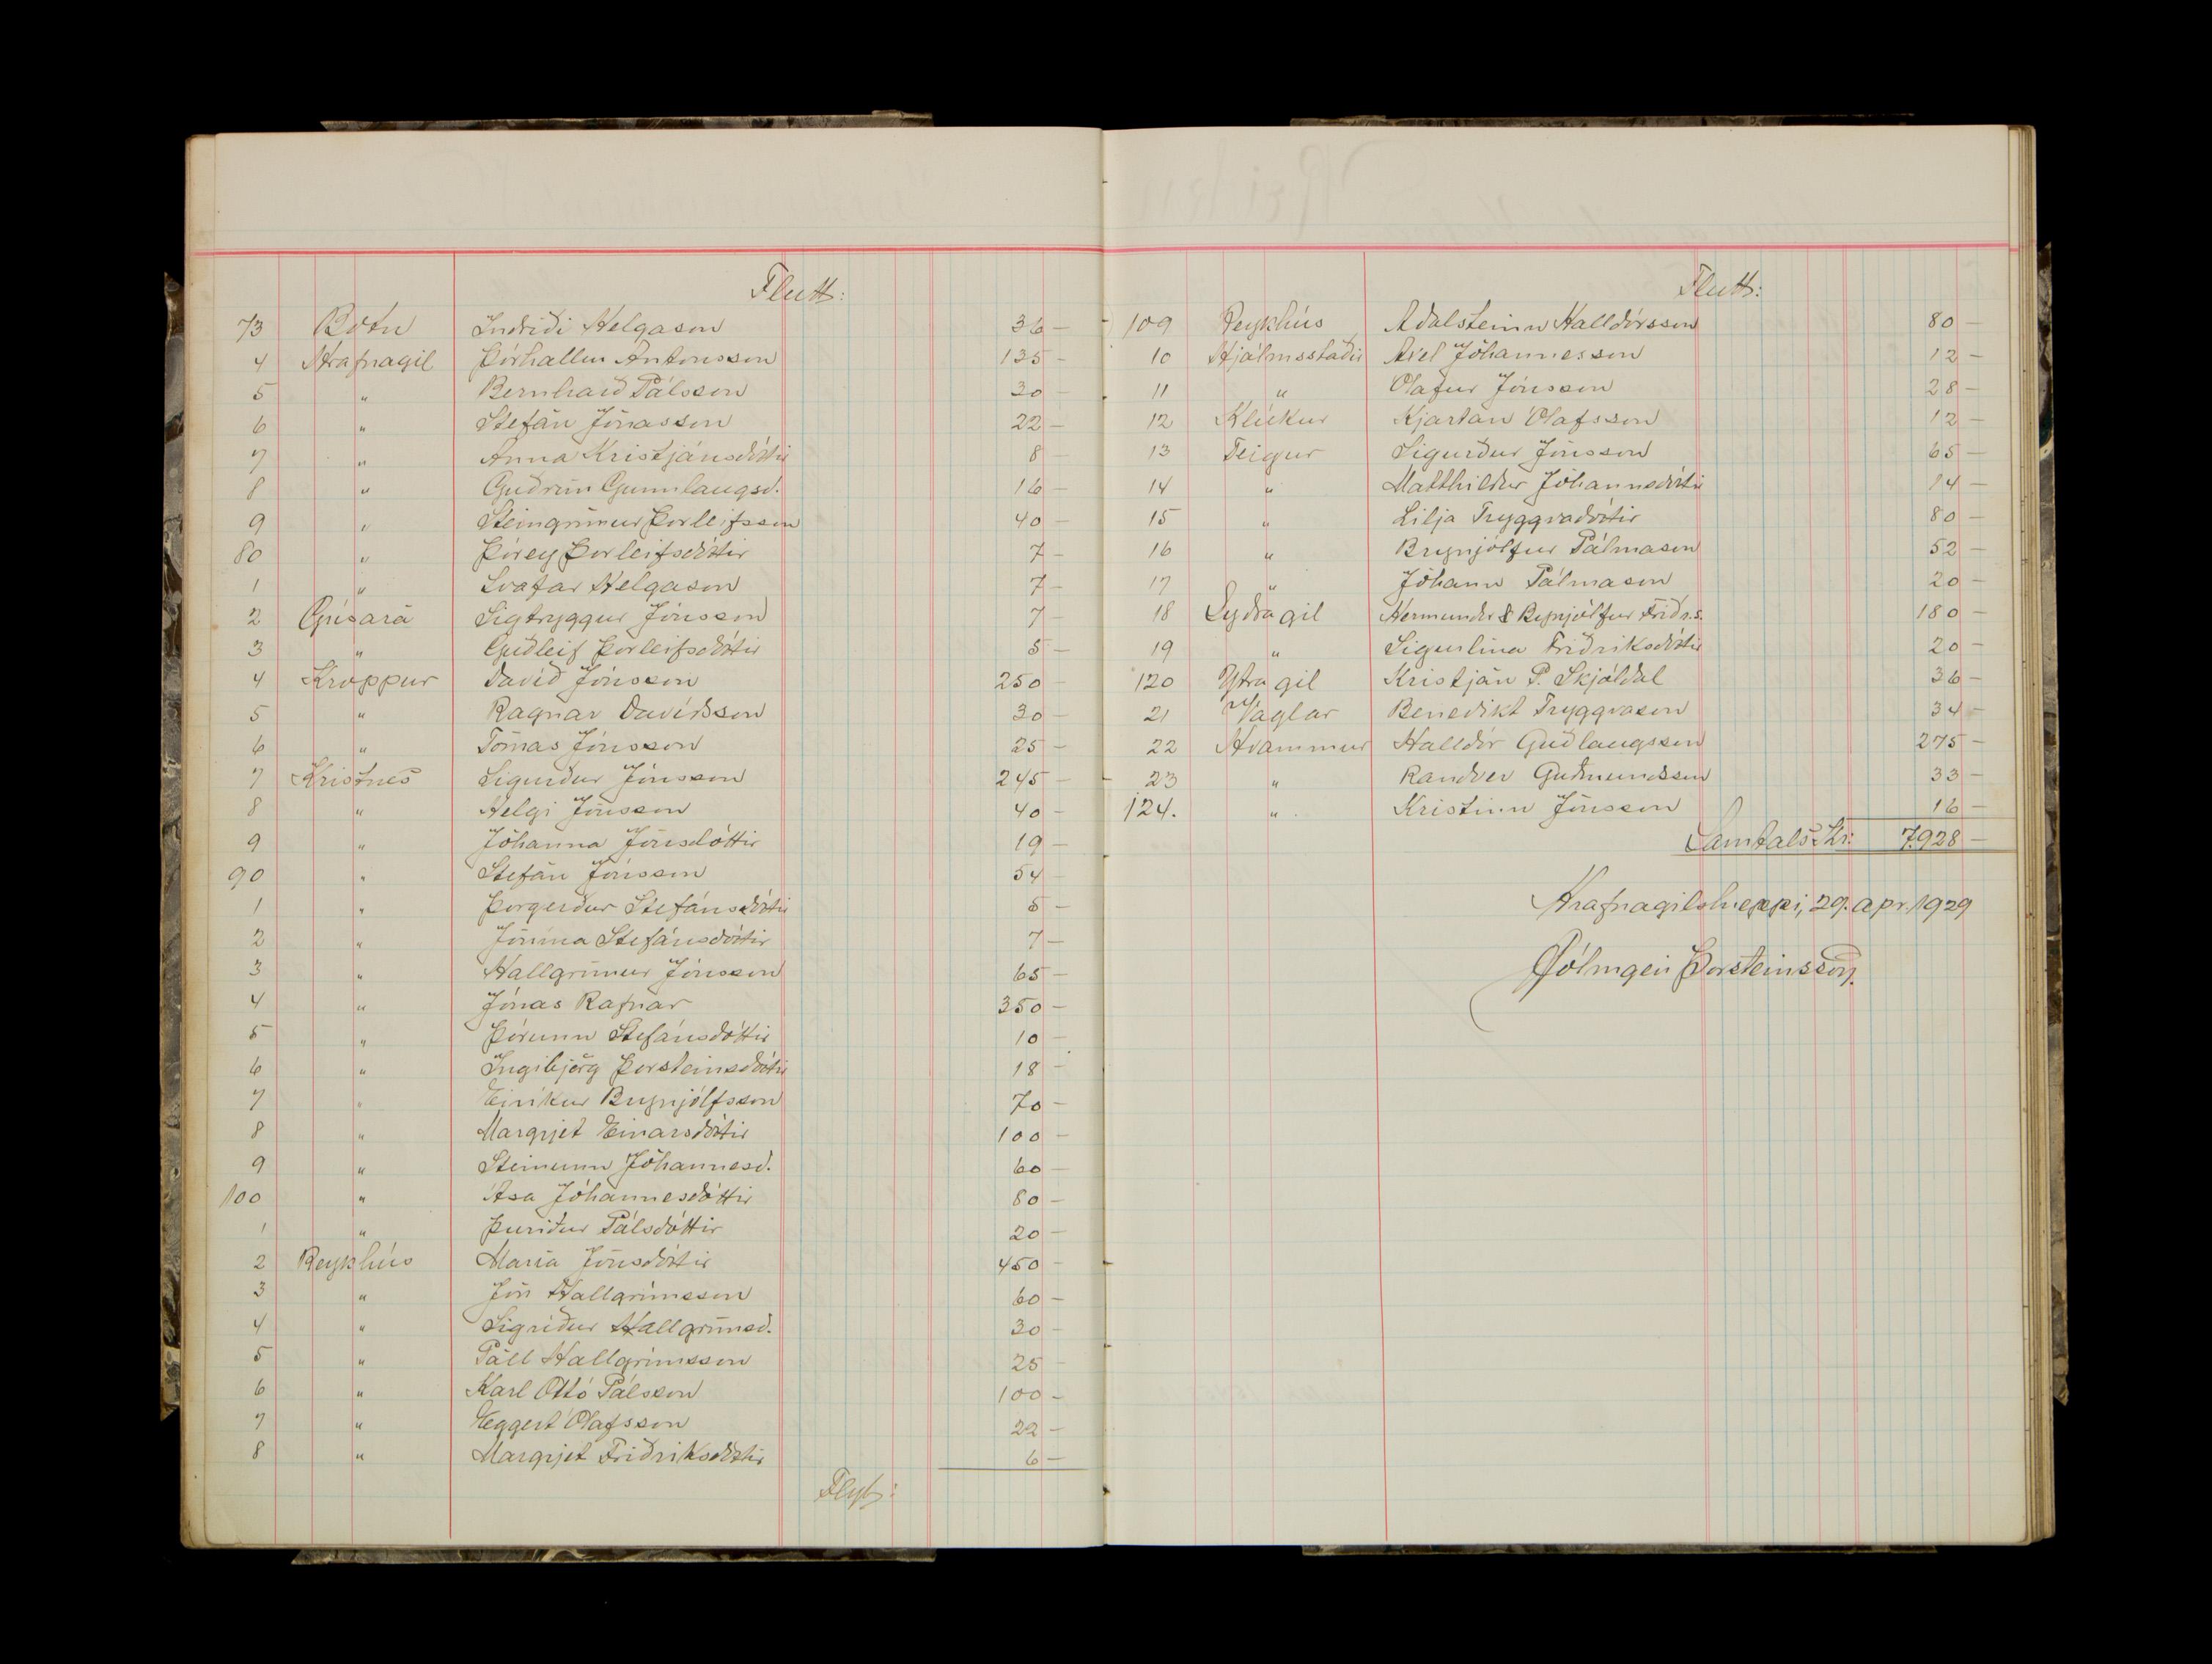 Flutt:
73 Botn Indriði Helgason 36 —
4 Hrafnagil Þórhallur Antonsson 135 —
5 " Bernharð Pálsson 30 —
6 " Stefán Jónasson 22 —
7 " Anna Kristjánsdóttir 8 —
8 " Guðrún Gunnlaugsd. 16 —
9 " Steingrímur Þorleifsson 40 —
80 " Þórey Þorleifsdóttir 7 —
1 " Svafar Helgason 7 —
2 Grísará Sigtryggur Jónsson 7 —
3 " Guðleif Þorleifsdóttir 5 —
4 Kroppur Davíð Jónsson 250 —
5 " Ragnar Davíðsson 30 —
6 " Tómas Jónsson 25 —
7 Kristnes Sigurður Jónsson 245 —
8 " Helgi Jónsson 40 —
9 " Jóhanna Jónsdóttir 19 —
90 " Stefán Jónsson 54 —
1 " Þorgerður Stefánsdóttir 5 —
2 " Jónína Stefánsdóttir 7 —
3 " Hallgrímur Jónsson 65 —
4 " Jónas Rafnar 350 —
5 " Þórunn Stefánsdóttir 10 —
6 " Ingibjörg Þorsteinsdóttir 18 —
7 " Eiríkur Brynjólfsson 70 —
8 " Margrjet Einarsdóttir 100 —
9 " Steinunn Jóhannesd. 60 —
100 " Ása Jóhannesdóttir 80 —
1 " Þuríður Pálsdóttir 20 —
2 Reykhús María Jónsdóttir 450 —
3 " Jón Hallgrímsson 60 —
4 " Sigríður Hallgrímsd. 30 —
5 " Páll Hallgrímsson 25 —
6 " Karl Ottó Pálsson 100 —
7 " Eggert Ólafsson 22 —
8 " Margrjet Friðriksdóttir 6 —
Flyt:
Flutt:
109 Reykhús Aðalsteinn Halldórsson 80 —
10 Hjálmsstaðir Axel Jóhannesson 12 —
11 " Ólafur Jónsson 28 —
12 Klúkur Kjartan Ólafsson 12 —
13 Teigur Sigurður Jónsson 65 —
14 " Matthildur Jóhannsdóttir 14 —
15 " Lilja Tryggvadóttir 80 —
16 " Brynjólfur Pálmason 52 —
17 " Jóhann Pálmason 20 —
18 Syðragil Hermundur & Brynjólfur Friðr.s. 180 —
19 " Sigurlína Friðriksdóttir 20 —
120 Ytragil Kristján P. Skjóldal 36 —
21 Vaglar Benedikt Tryggvason 34 —
22 Hvammur Halldór Guðlaugsson 275 —
23 " Randver Guðmundsson 33 —
124. " Kristinn Jónsson 16 —
Samtals Kr: 7.928 —
Hrafnagilshreppi, 29. apr. 1929
Hólmgeir Þorsteinsson.